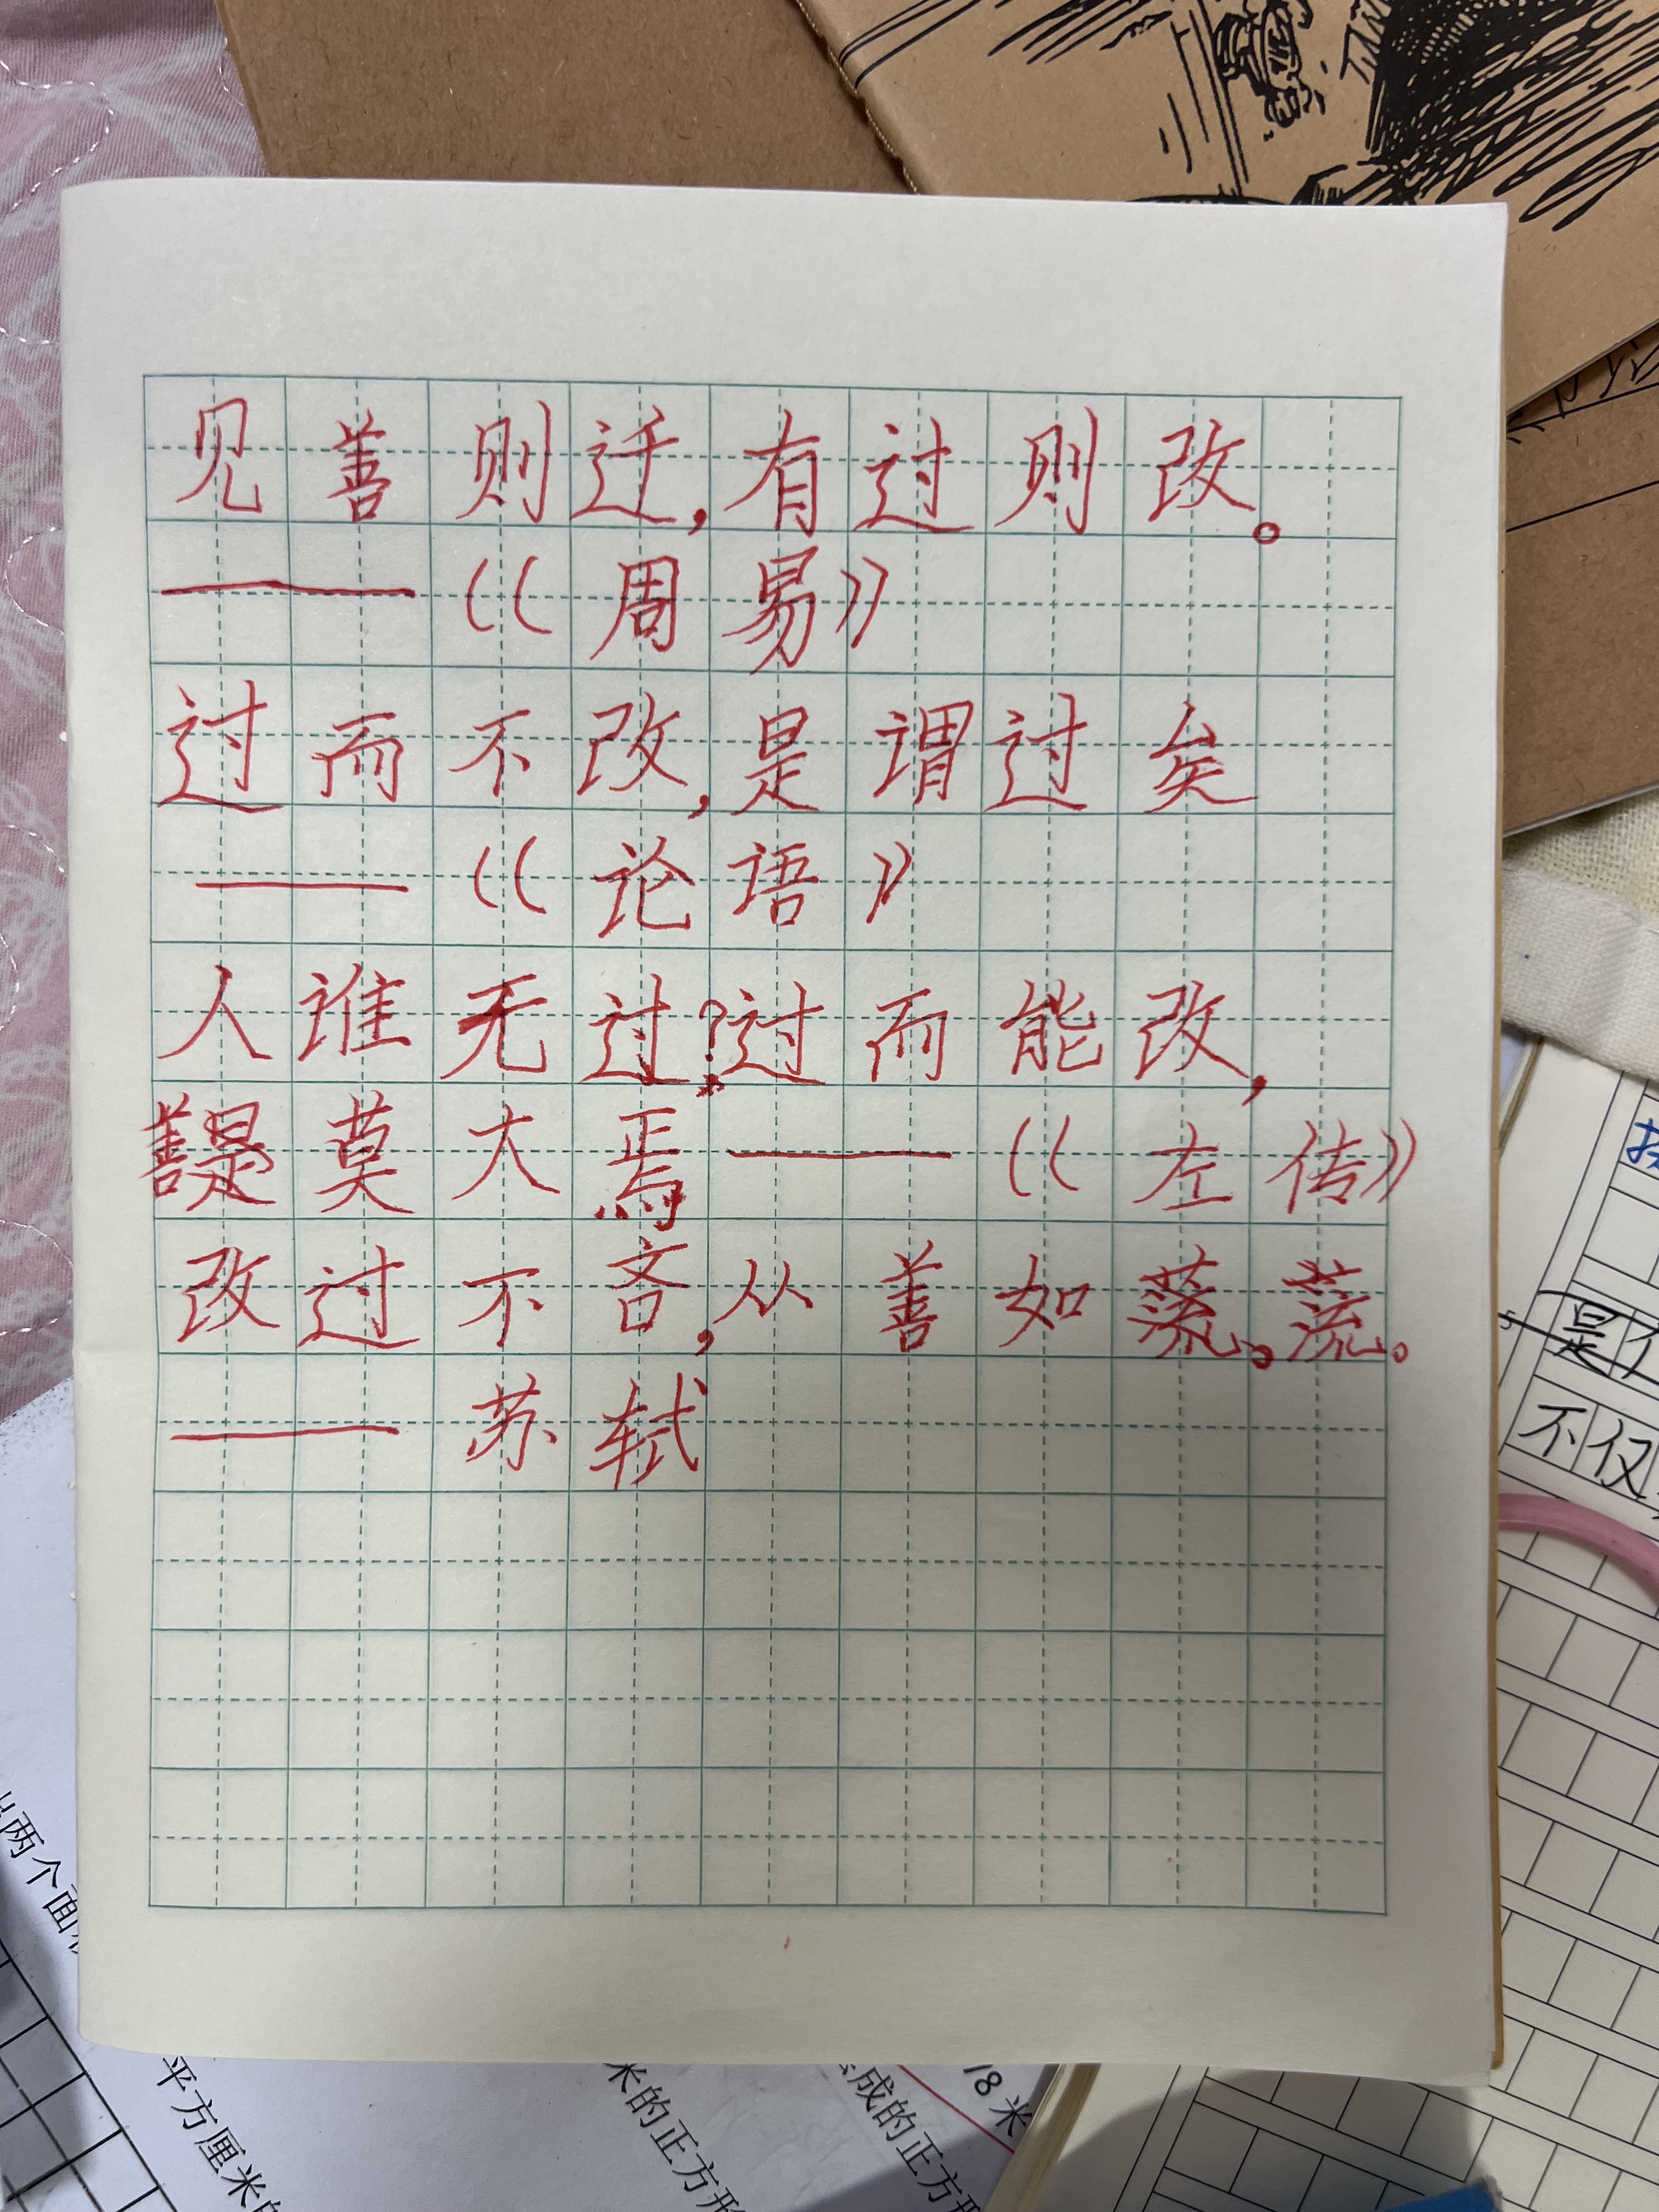 见善则迁,有过则改。
——《周易》
过而不改,是谓过矣
——《论语》
人谁无过?过而能改,
善是莫大焉——《左传》
改过不吝,从善如蓅。蓅。
——苏轼
是不
不仅
出两个面积
平方厘米的
米的正方形
成的正方形
18米